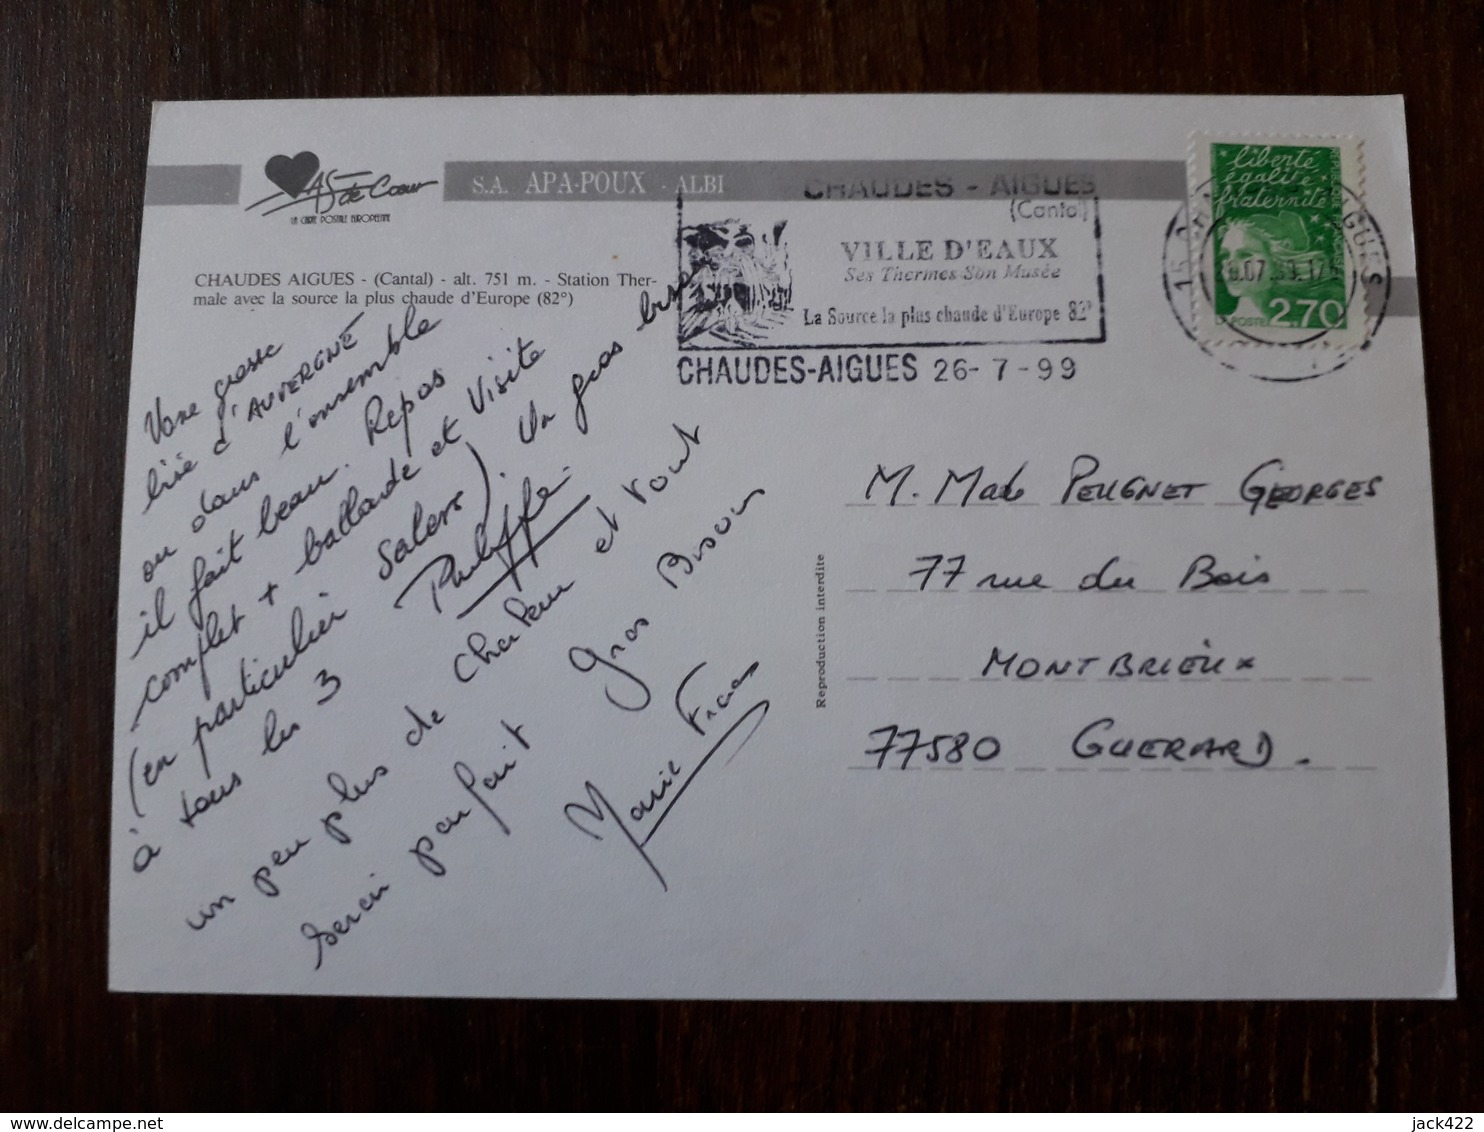 AS de Cœur
LA CARTE POSTALE EUROPEENNE
S.A. APA-POUX - ALBI
CHAUDES AIGUES - (Cantal) - alt. 751 m. - Station Ther-
male avec la source la plus chaude d'Europe (82°)
CHAUDES - AIGUES
(Cantal)
VILLE D'EAUX
Ses Thermes Son Musée
La Source la plus chaude d'Europe 82°
CHAUDES-AIGUES 26-7-99
liberté
égalité
fraternité
LA POSTE 2,70
d'AUVERGNE
ou dans l'ensemble
il fait beau. Repos
complet + ballade et Visite
(en particulier Salers). Un gros bisou
à tous les 3
Philippe
un peu plus de chaleur et tout
serait parfait Gros Bisous
Marie
M. Made PEUGNET GEORGES
77 rue du Bois
MONTBRIEUX
77580 GUERARD.
Reproduction interdite
jack422